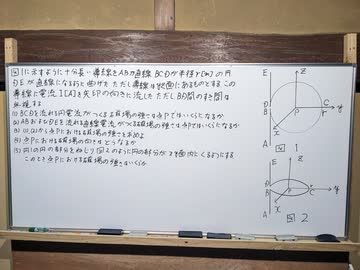 図1に示すように十分長い導線をABが直線 BCDが半径r[m]の円
DEが直線になるように曲げた ただし導線はyz面にあるものとする この
導線に電流I[A]を矢印の向きに流した ただしBD間のすき間は
無視する
(1) BCDを流れる円電流がつくる磁場の強さは点Pではいくらになるか
(2) ABおよびDEを流れる直線電流がつくる磁場の強さは点Pではいくらになるか
(3) (1),(2)から点Pにおける磁場の強さを求めよ
(4) 点Pにおける磁場の向きはどうなるか
(5) 円の部分をねじり図2のように円の部分がxy面内にくるようにする
このとき点Pにおける磁場の強さはいくらか
E
z
D
B
P
C
r
y
A
x
図1
E
z
D
B
P
C
y
A
x
図2